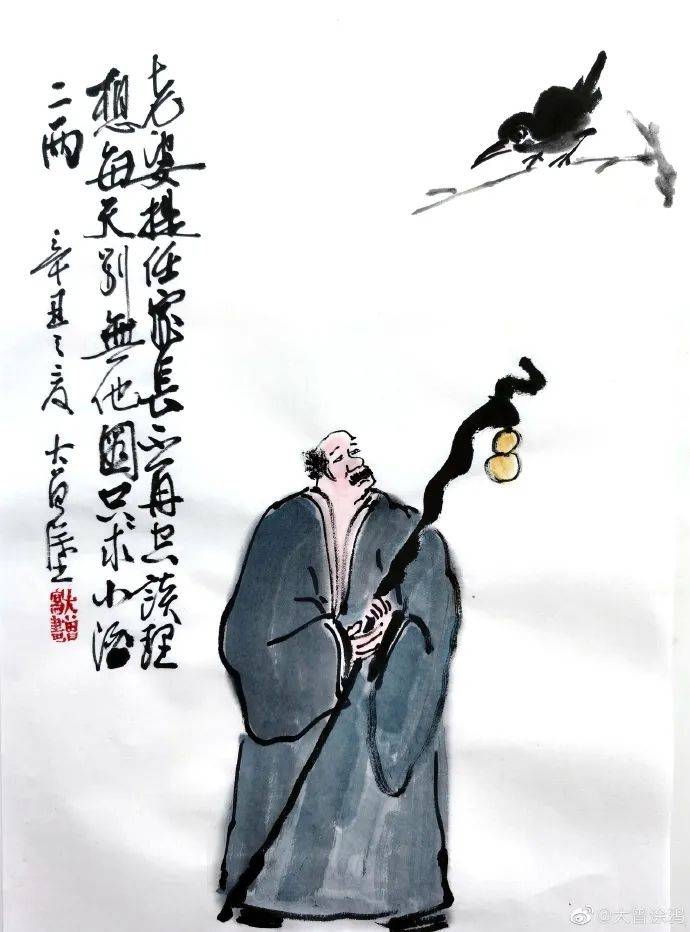 老婆提任家長不再空談理
想每天別無他圖只求小酒
二兩
辛丑之夏 大曾塗
@大曾涂鸦